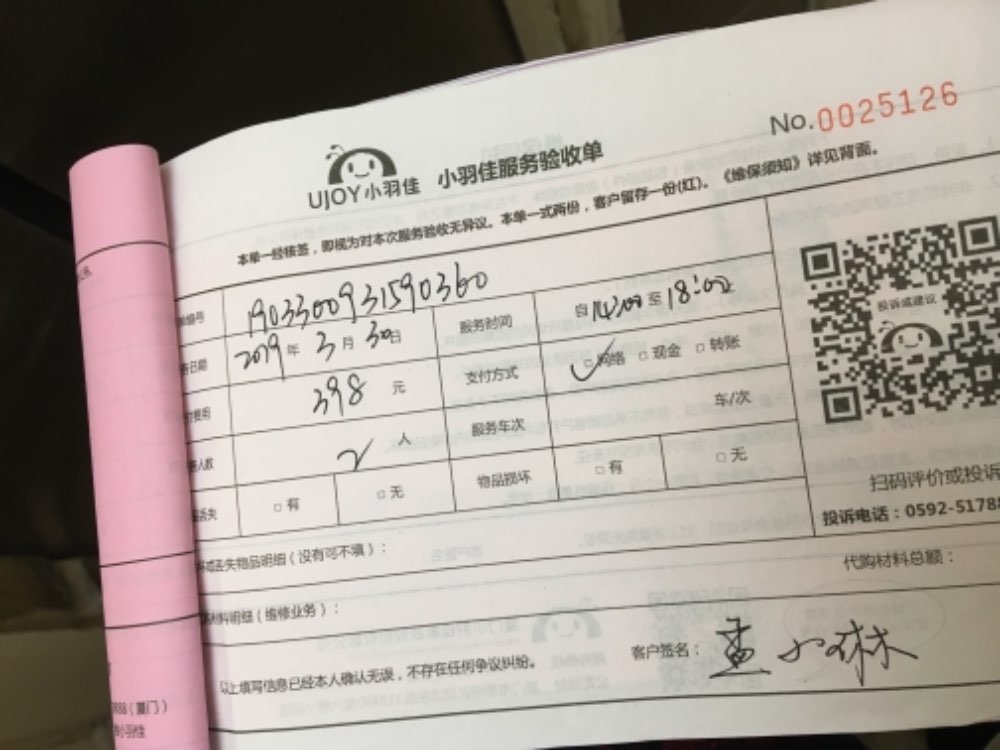 No.0025126
UJOY小羽佳 小羽佳服务验收单
本单一经核签，即视为对本次服务验收无异议。本单一式两份，客户留存一份(红)。《维保须知》详见背面。
编号 1903300931590360
日期 2019年3月30日 服务时间 自14:00至18:02
费用 398 元 支付方式 □网络 □现金 □转账
人数 2 人 服务年次 车/次
丢失 □有 □无 物品损坏 □有 □无
投诉或建议
扫码评价或投诉
投诉电话：0592-51788
丢失物品明细（没有可不填）：
材料明细（维修业务）： 代购材料总额：
以上填写信息已经本人确认无误，不存在任何争议纠纷。 客户签名：孟小琳
888（厦门）
小羽佳